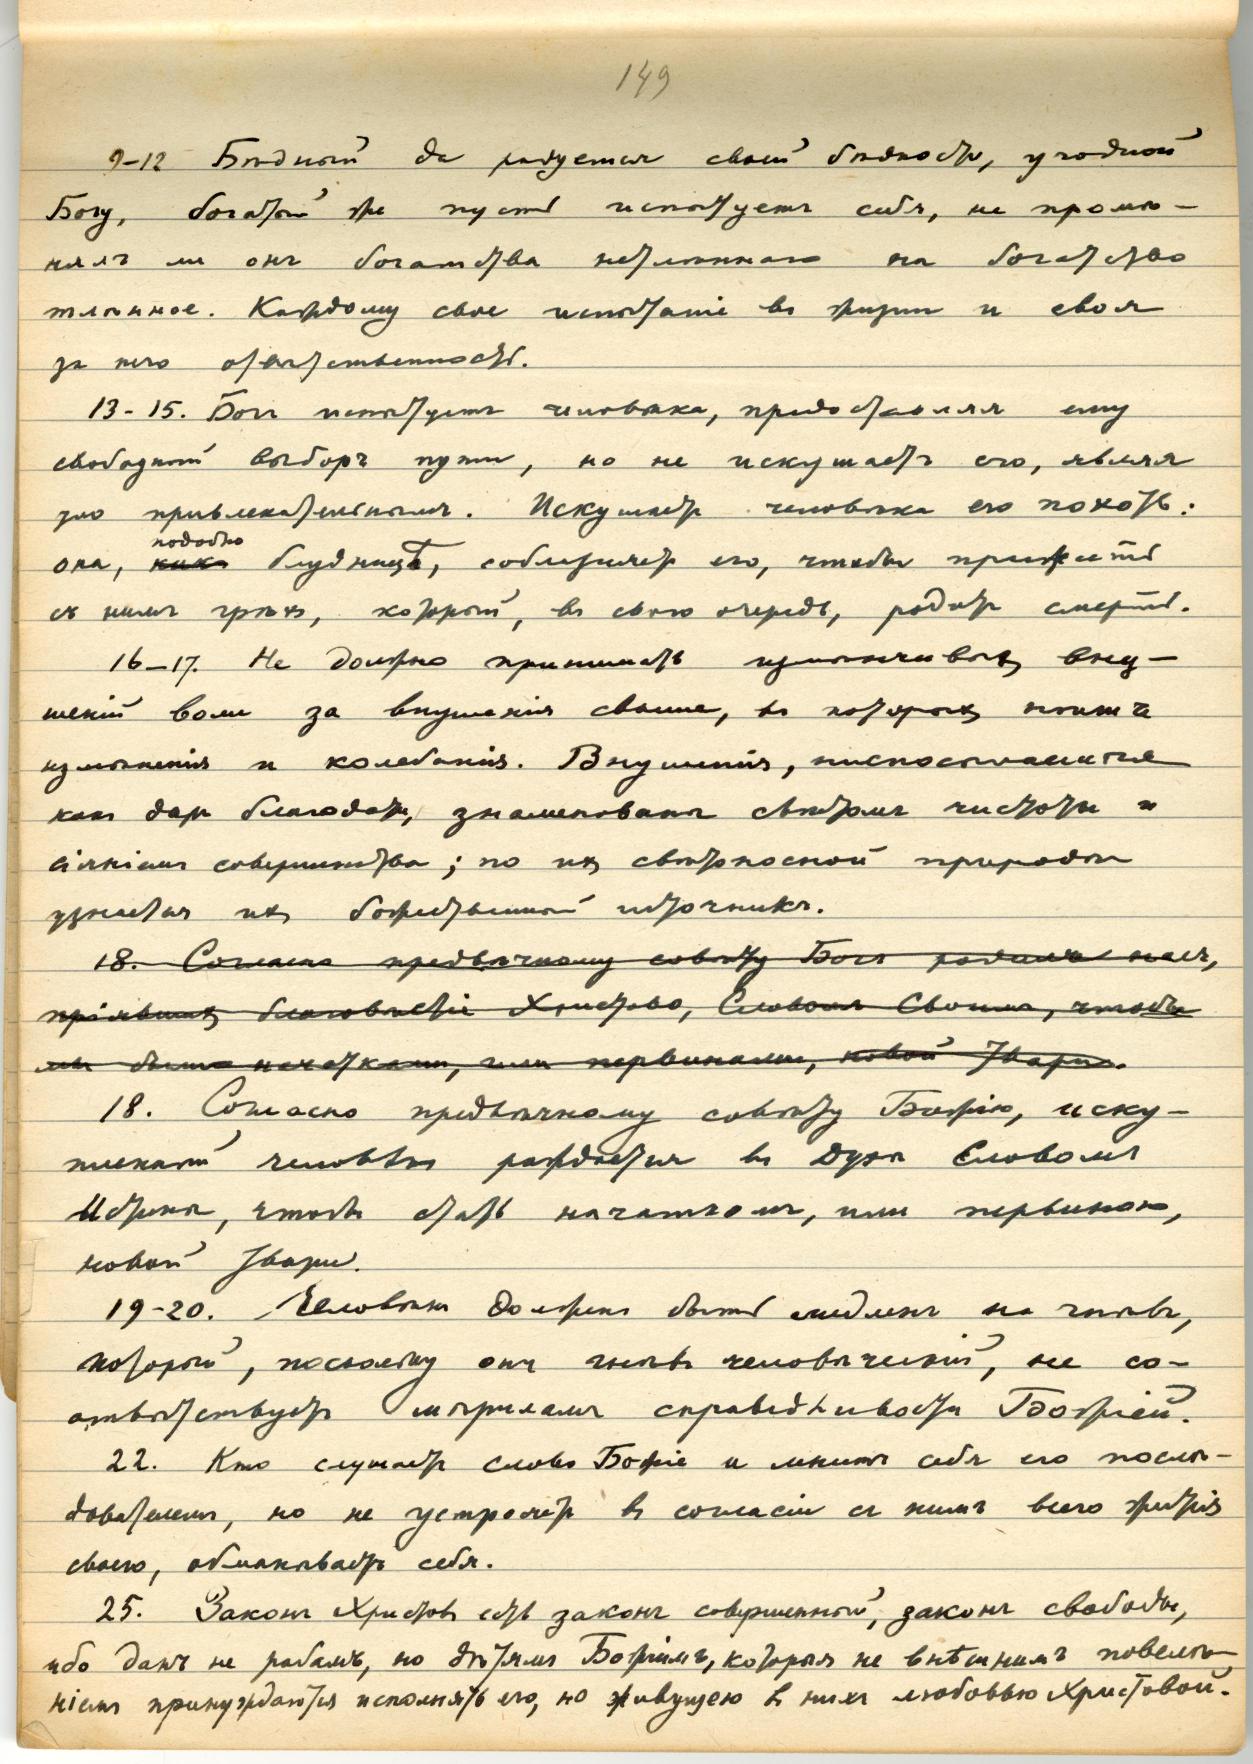 149
9-12 Бѣдный да радуется своей бѣдности, угодной
Богу, богатый же пусть испытуетъ себя, не промѣ-
нялъ ли онъ богатства нетлѣннаго на богатство
тлѣнное. Каждому свое испытаніе въ жизни и своя
за него отвѣтственность.
13-15. Богъ испытуетъ человѣка, предоставляя ему
свободный выборъ пути, но не искушаетъ его, являя
зло привлекательнымъ. Искушаетъ человѣка его похоть:
подобно
она, какъ блудницѣ, соблазняетъ его, чтобы прижить
съ нимъ грѣхъ, который, въ свою очередь, родитъ смерть.
16-17. Не должно принимать измѣнчивыхъ вну-
шеній воли за внушенія свыше, въ которыхъ нѣтъ
измѣненія и колебанія. Внушенія, ниспосылаемыя
какъ даръ благодати, знаменованы свѣтомъ чистоты и
сіяніемъ совершенства; по ихъ свѣтоносной природѣ
узнается ихъ божественный источникъ.
18. Согласно предвѣчному совѣту Богъ родилъ насъ,
пріявшихъ благовѣстіе Христово, Словомъ Своимъ, чтобы
мы были начатками, или первинами, новой твари.
18. Согласно предвѣчному совѣту Божію, иску-
пленный человѣкъ рождается въ Духѣ Словомъ
Истины, чтобы стать начаткомъ, или первиною,
новой твари.
19-20. Человѣкъ долженъ быть медленъ на гнѣвъ,
который, поскольку онъ гнѣвъ человѣческій, не со-
отвѣтствуетъ мѣриламъ справедливости Божіей.
22. Кто слушаетъ слово Божіе и мнитъ себя его послѣ-
дователемъ, но не устрояетъ въ согласіи съ нимъ всего житія
своего, обманываетъ себя.
25. Законъ Христовъ есть законъ совершенный, законъ свободы,
ибо данъ не рабамъ, но дѣтямъ Божіимъ, которыя не внѣшнимъ повелѣ-
ніемъ принуждаются исполнять его, но живущею въ нихъ любовью Христовой.